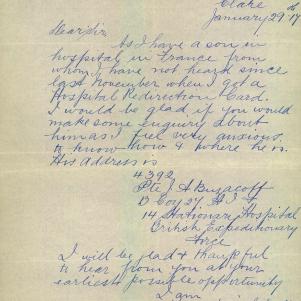 Clare
January 29th 17
Dear Sir
As I have a son in
hospital in France from
whom I have not heark since
last November when I got a
Hospital Redirection Card.
I would be glad if you would
make some Enquiry about
him as I feel very anxious
to know how & where he is.
His address is
4392
Pte J. A Buzacott
D Coy 27. A I F
14 Stationary Hospital
British Expeditionary
Force
I will be glad & thankful
to hear from you at your
earliest possible opportunity
I am